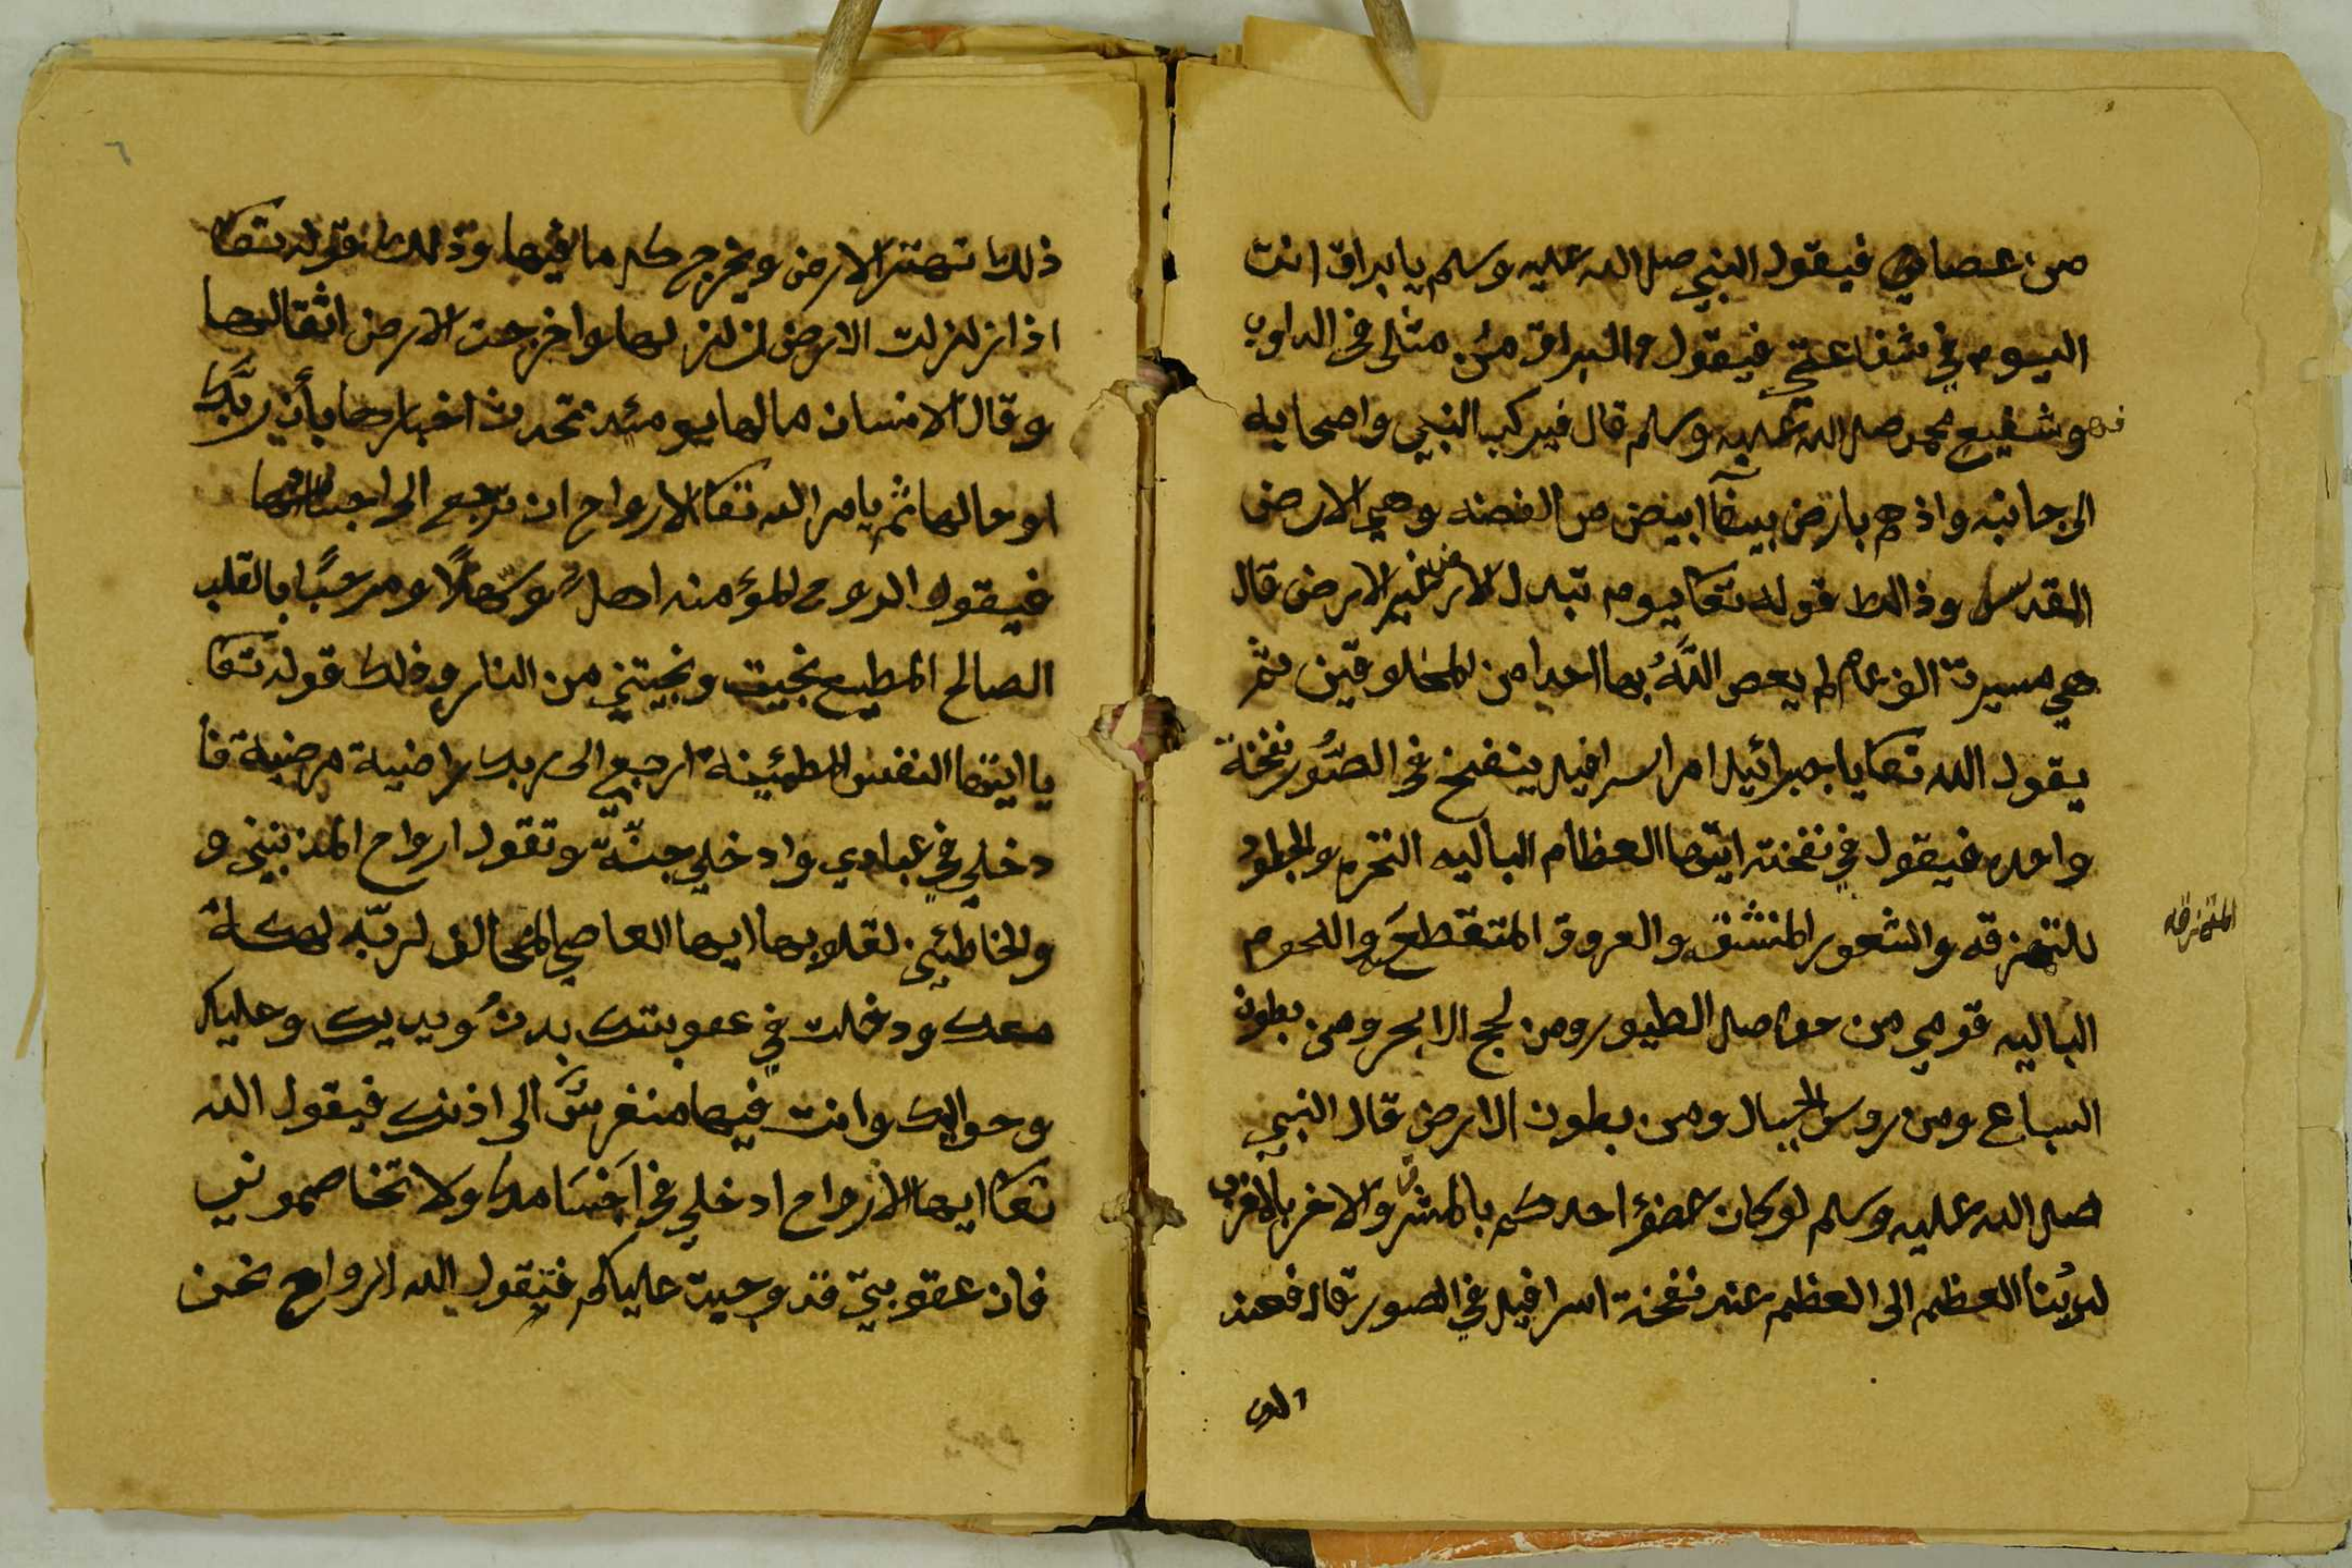 من عصاني فيقول النبي صلى الله عليه وسلم يا براق انت
اليوم في شفاعتي فيقول والبراق من مثلي في الدواب
فهو شفيع محمد صلى الله عليه وسلم قال فيركب النبي واصحابه
الى جانبه واذ هم بارض بيضآ ابيض من الفضه وهي الارض
المقدس وذالك قوله تعا يوم تبدل الارض غير الارض قال
هي مسيرة الف عام لم يعص اللهُ بها احدا من المخلوقين ثم
يقول الله تعا يا جبرائيل امر اسرافيل ينفخ في الصُّور نفخة
واحده فيقول في نفخته ايتها العظام الباليه النخره والجلود
للتمزقه والشعور المنشق والعروق المتقطع واللحوم
المتمزقه
الباليه قومي من حواصل الطيور ومن لجج الابحر ومن بطون
السباع ومن روس الجبال ومن بطون الارض قال النبي
صلى الله عليه وسلم لو كان عضؤ احدكم بالمشرق والاخر بالمغرب
العظم الى العظم عند نفخة اسرافيل في الصور قال فعند
ذلك تهتز الارض ويخرج كل ما فيها وذلك قوله تعا
اذا زلزلت الارض زلزلها واخرجت الارض اثقالها
وقال الانسان مالها يومئذ تحدث اخبارها بأن ربّك
اوحالها ثم يامر الله تعا الارواح ان ترجع الى اجسادها
فيقول الروح المؤمنه اهلاً وسهلًا ومرحبًا بالقلب
الصالح المطيع نجيت ونجيتني من النار وذلك قوله تعا
يا ايتها النفس المطمئينة ارجعي الى ربك راضية مرضية فا
دخلي في عبادي وادخلي جنّتي وتقول ارواح المذنبين و
والخاطئين لقلوبها ايها العاصي المخالف لربّه لهكلة
معك ودخلت في عقوبتك بدنُ ويديك وحليك
وحواليك وانت فيها منغرسٌ الى اذنك فيقول الله
تعا ايها الارواح ادخلي في اجسامك ولا تخاصموني
فان عقوبتي قد وجبت عليكم فتقول الارواح نحن